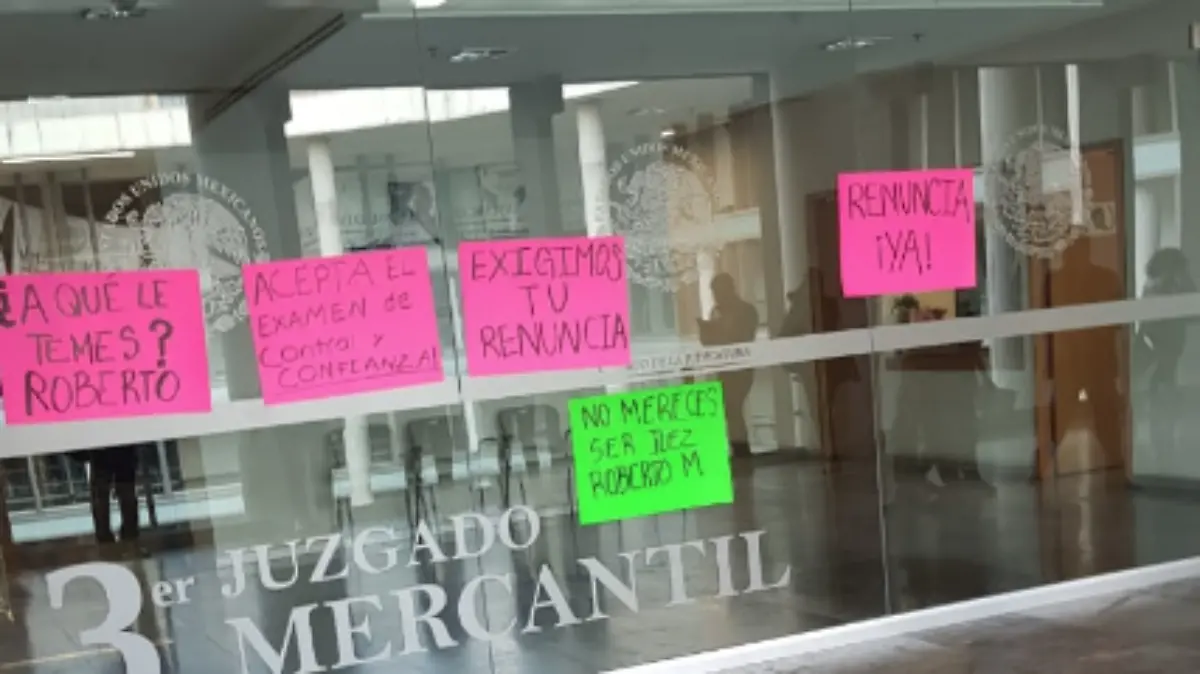 ¿A QUÉ LE
TEMES?
ROBERTO
ACEPTA EL
EXAMEN de
Control y
CONFIANZA!
EXIGIMOS
TU
RENUNCIA
RENUNCIA
¡YA!
NO MERECES
SER JUEZ
ROBERTO M
UNIDOS MEXICANOS
UNIDOS MEXICANOS
3er JUZGADO
MERCANTIL